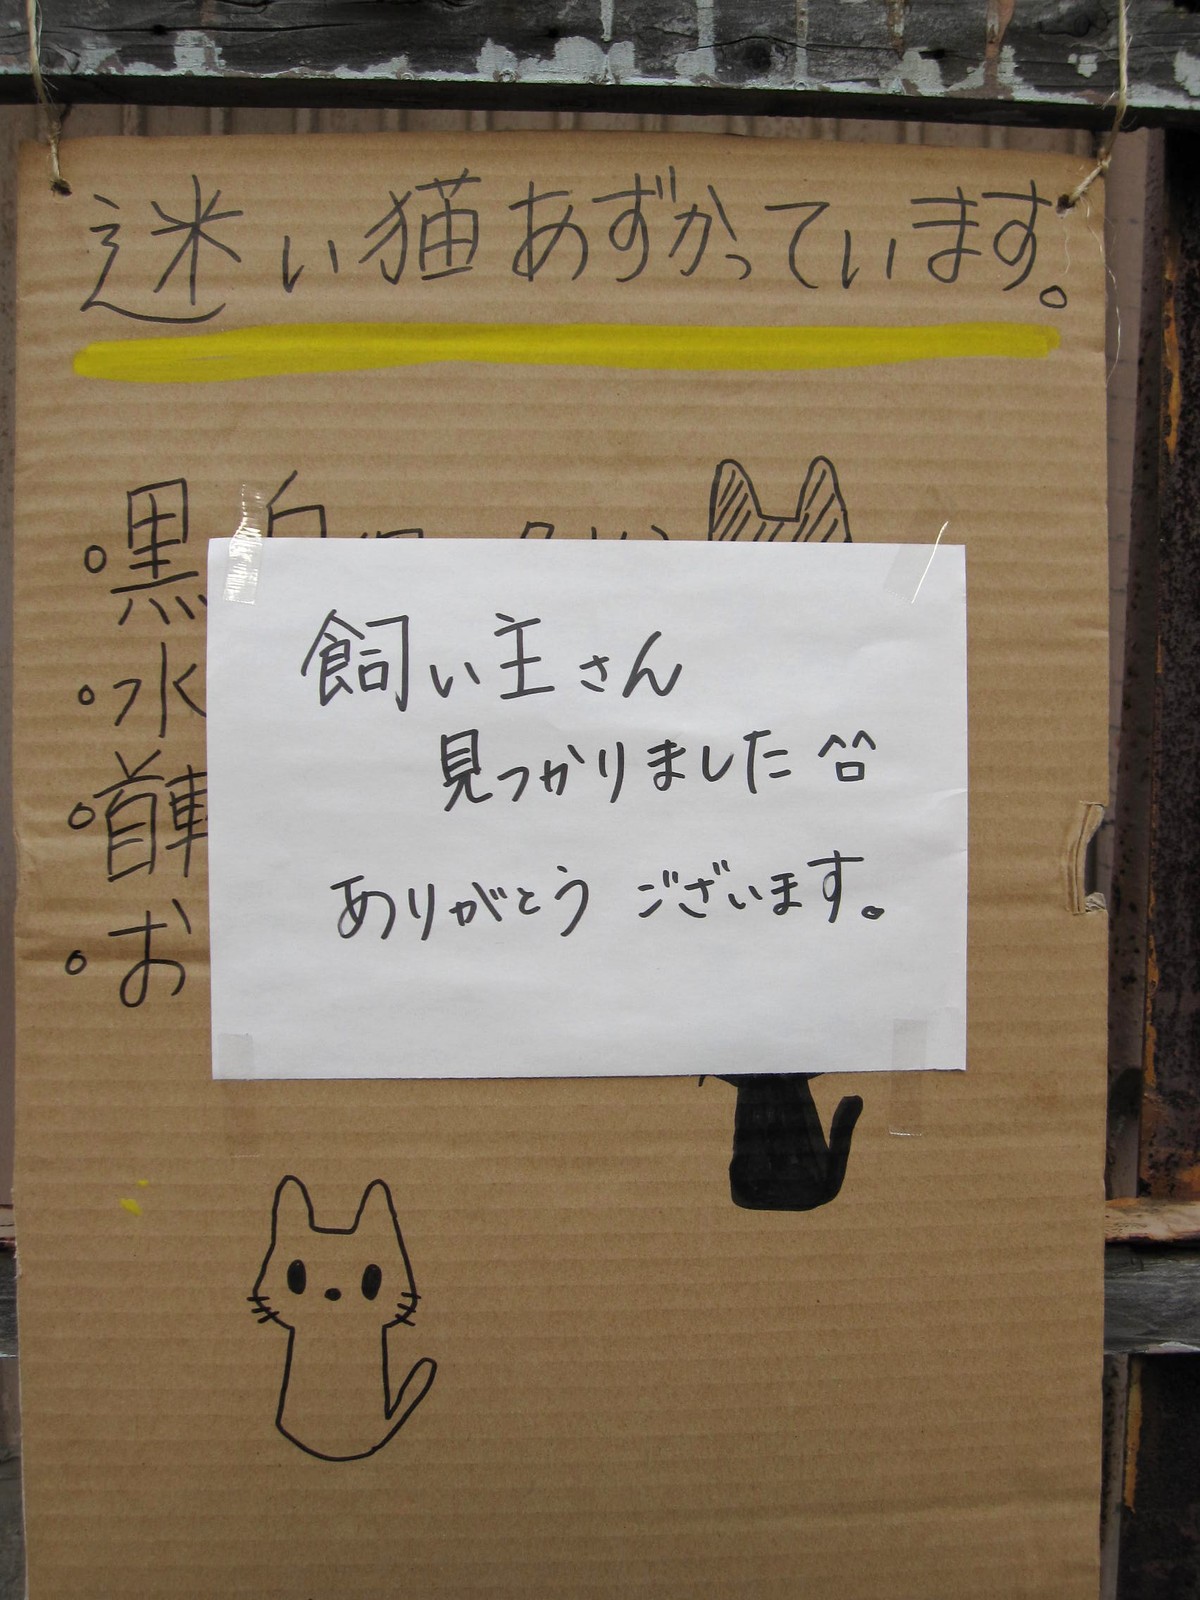 迷い猫あずかっています。
・黒白
・水
・首輪
・お
飼い主さん
見つかりました ^□^
ありがとう ございます。